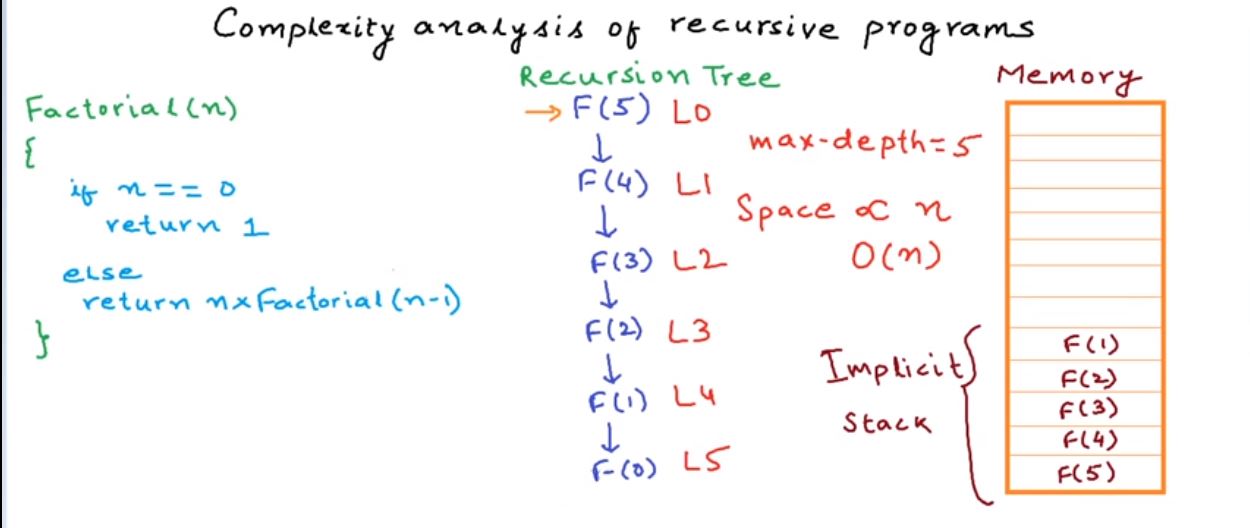 Complexity analysis of recursive programs
Factorial(n)
{
if n == 0
return 1
else
return n×Factorial(n-1)
}
Recursion Tree
→ F(5) L0
↓
F(4) L1
↓
F(3) L2
↓
F(2) L3
↓
F(1) L4
↓
F(0) L5
max-depth=5
Space ∝ n
O(n)
Implicit
Stack
{
Memory
F(1)
F(2)
F(3)
F(4)
F(5)